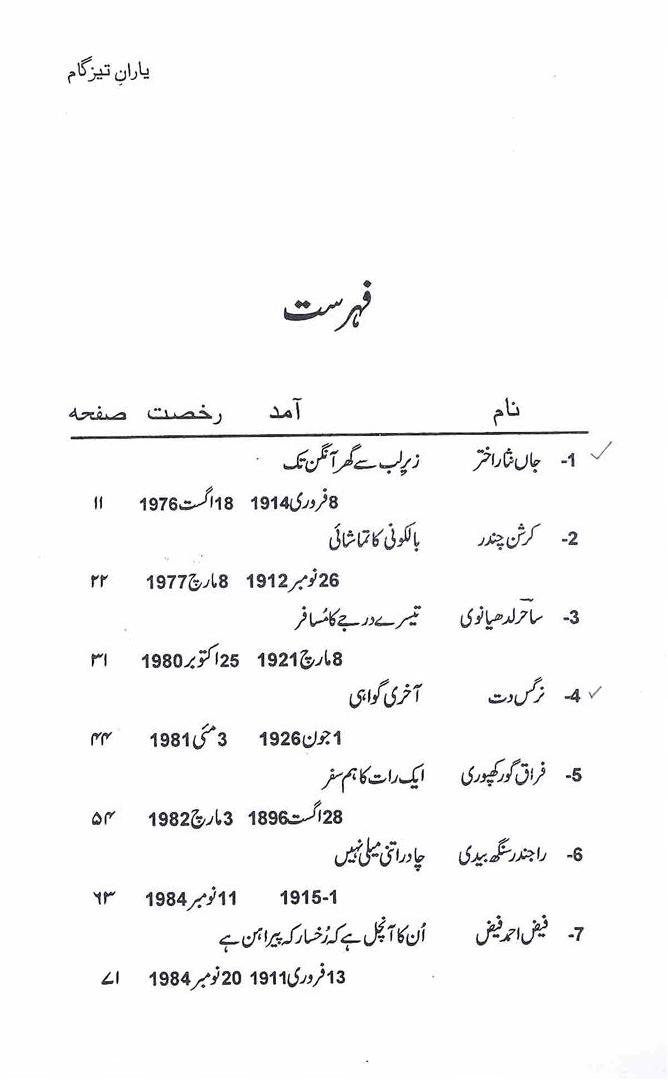 یارانِ تیزگام
فہرست
نام آمد رخصت صفحہ
1- جاں نثار اختر زیرِ لب سے گھر آنگن تک
8فروری1914 18اگست1976 ۱۱
2- کرشن چندر بالکونی کا تماشائی
26نومبر1912 8مارچ1977 ۲۲
3- ساحر لدھیانوی تیسرے درجے کا مُسافر
8مارچ1921 25اکتوبر1980 ۳۱
4- نرگس دت آخری گواہی
1جون1926 3مئی1981 ۴۴
5- فراق گورکھپوری ایک رات کا ہم سفر
28اگست1896 3مارچ1982 ۵۴
6- راجندر سنگھ بیدی چادر اتنی میلی نہیں
1915-1 11نومبر1984 ۶۳
7- فیض احمد فیض اُن کا آنچل ہے کہ رُخسار کہ پیراہن ہے
13فروری1911 20نومبر1984 ۷۱